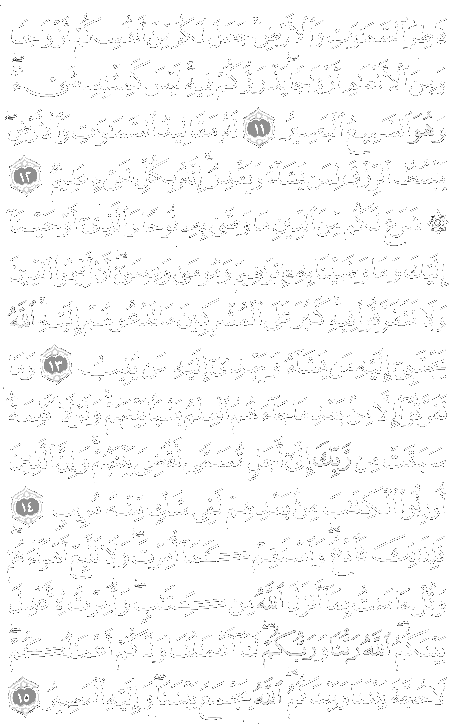 فَاطِرُ السَّمَٰوَٰتِ وَالْأَرْضِ جَعَلَ لَكُم مِّنْ أَنفُسِكُمْ أَزْوَٰجًا
وَمِنَ الْأَنْعَٰمِ أَزْوَٰجًا يَذْرَؤُكُمْ فِيهِ لَيْسَ كَمِثْلِهِ شَيْءٌ
وَهُوَ السَّمِيعُ الْبَصِيرُ ١١ لَهُ مَقَالِيدُ السَّمَٰوَٰتِ وَالْأَرْضِ
يَبْسُطُ الرِّزْقَ لِمَن يَشَاءُ وَيَقْدِرُ إِنَّهُ بِكُلِّ شَيْءٍ عَلِيمٌ ١٢
۞ شَرَعَ لَكُم مِّنَ الدِّينِ مَا وَصَّىٰ بِهِ نُوحًا وَالَّذِي أَوْحَيْنَا
إِلَيْكَ وَمَا وَصَّيْنَا بِهِ إِبْرَٰهِيمَ وَمُوسَىٰ وَعِيسَىٰ أَنْ أَقِيمُوا الدِّينَ
وَلَا تَتَفَرَّقُوا فِيهِ كَبُرَ عَلَى الْمُشْرِكِينَ مَا تَدْعُوهُمْ إِلَيْهِ اللَّهُ
يَجْتَبِي إِلَيْهِ مَن يَشَاءُ وَيَهْدِي إِلَيْهِ مَن يُنِيبُ ١٣ وَمَا
تَفَرَّقُوا إِلَّا مِن بَعْدِ مَا جَاءَهُمُ الْعِلْمُ بَغْيًا بَيْنَهُمْ وَلَوْلَا كَلِمَةٌ
سَبَقَتْ مِن رَّبِّكَ إِلَىٰ أَجَلٍ مُّسَمًّى لَّقُضِيَ بَيْنَهُمْ وَإِنَّ الَّذِينَ
أُورِثُوا الْكِتَٰبَ مِن بَعْدِهِمْ لَفِي شَكٍّ مِّنْهُ مُرِيبٍ ١٤
فَلِذَٰلِكَ فَادْعُ وَاسْتَقِمْ كَمَا أُمِرْتَ وَلَا تَتَّبِعْ أَهْوَاءَهُمْ
وَقُلْ ءَامَنتُ بِمَا أَنزَلَ اللَّهُ مِن كِتَٰبٍ وَأُمِرْتُ لِأَعْدِلَ
بَيْنَكُمُ اللَّهُ رَبُّنَا وَرَبُّكُمْ لَنَا أَعْمَٰلُنَا وَلَكُمْ أَعْمَٰلُكُمْ
لَا حُجَّةَ بَيْنَنَا وَبَيْنَكُمُ اللَّهُ يَجْمَعُ بَيْنَنَا وَإِلَيْهِ الْمَصِيرُ ١٥